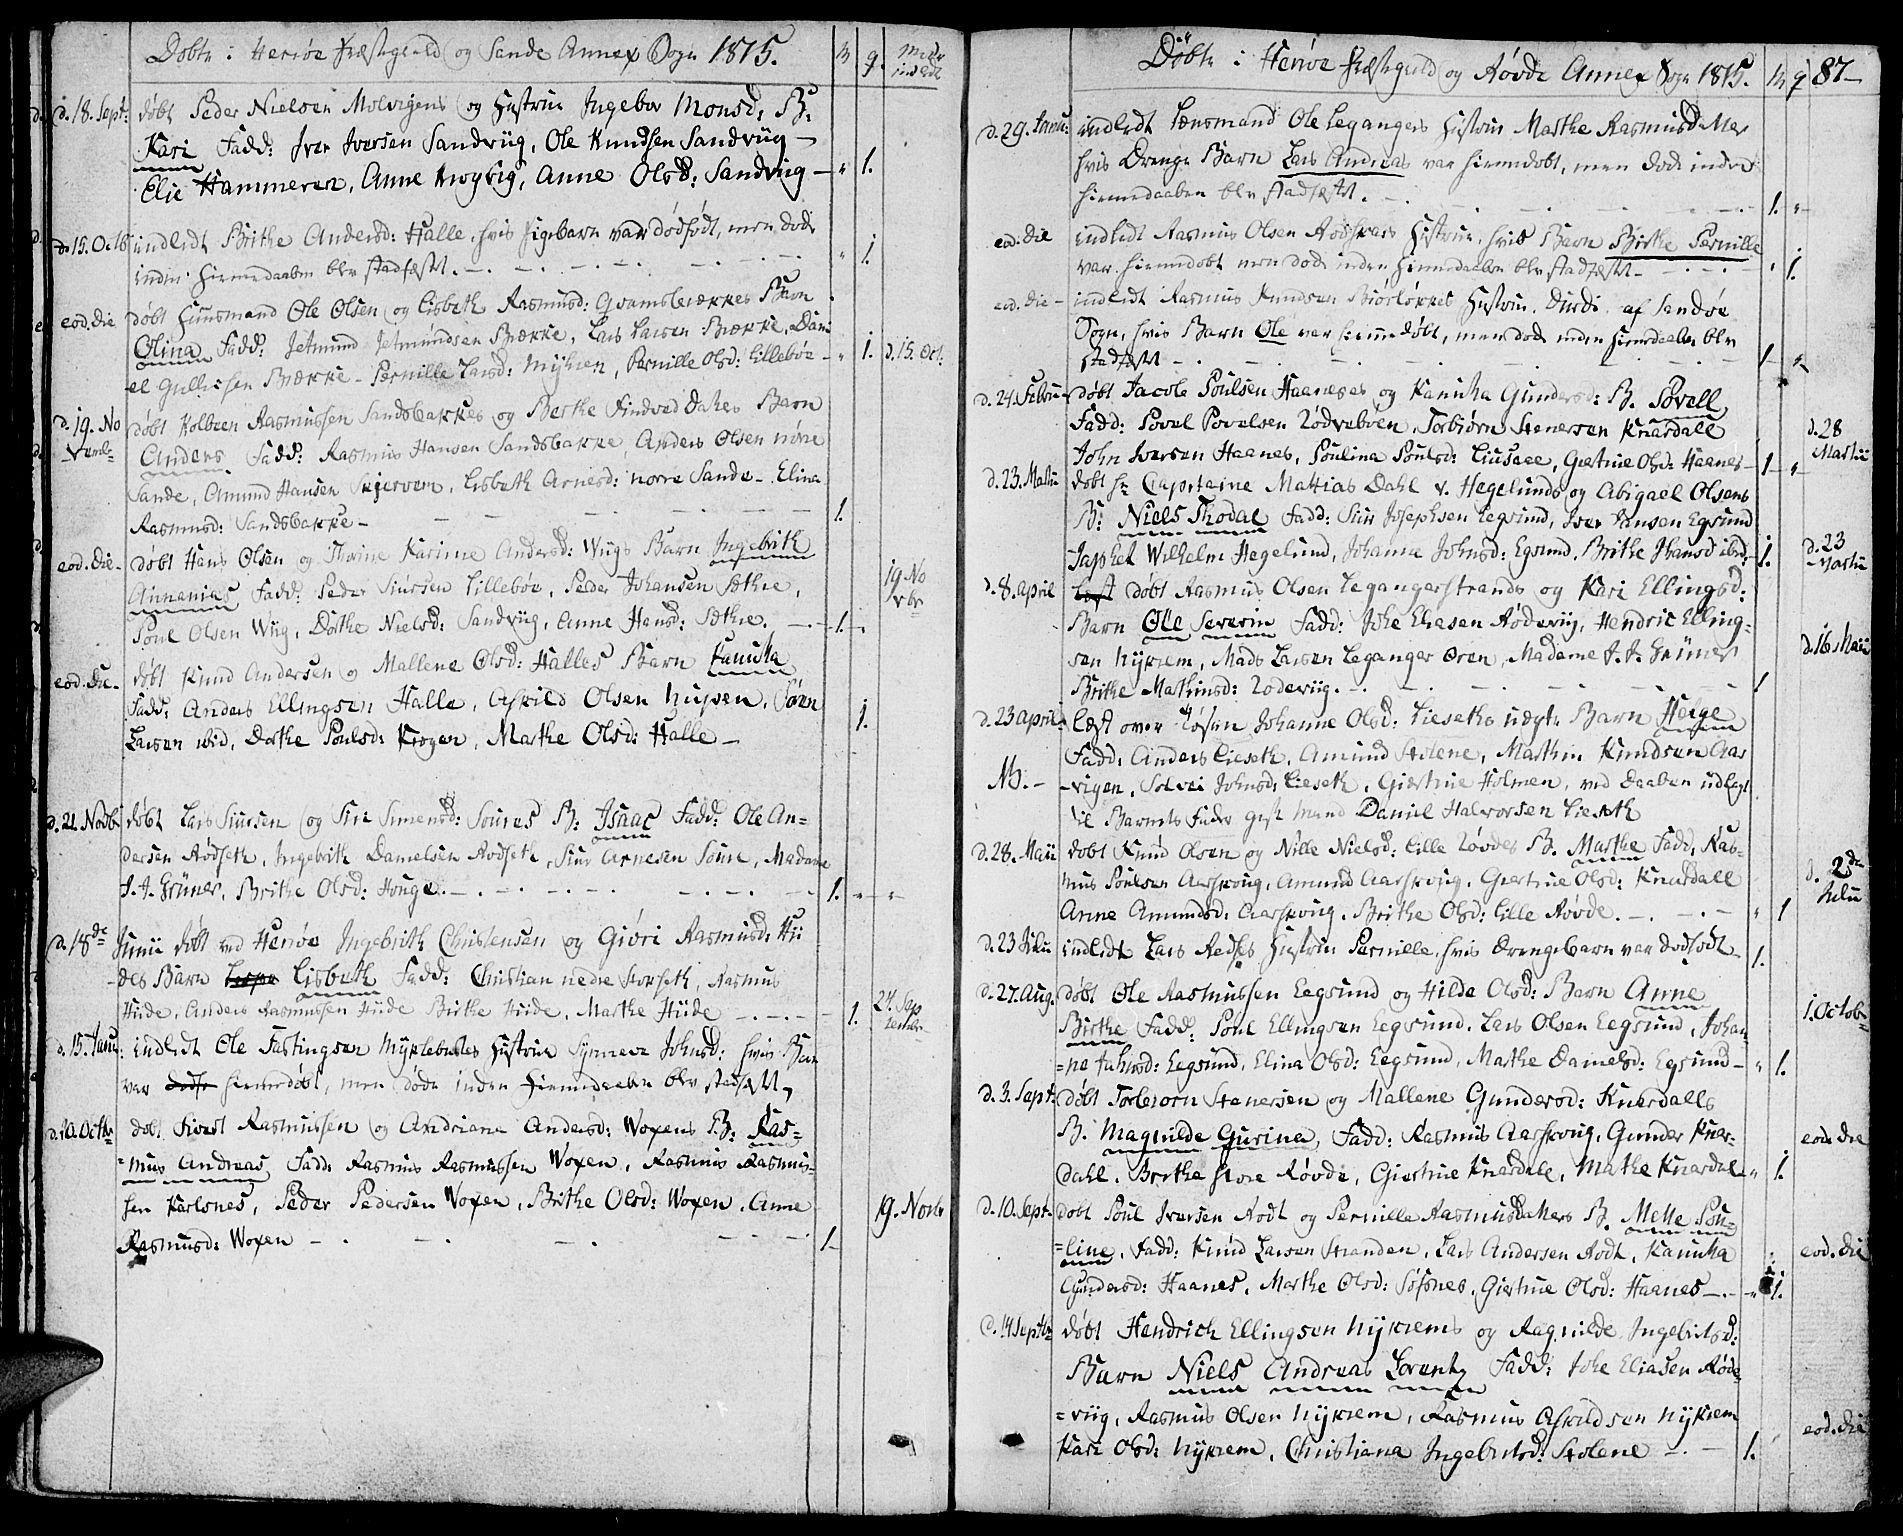 Døbte i Herrøe Præstegield og Sande Annex Sogn 1815.
M g. Moder indledt
d. 18. Sept: døbt Peder Nielsen Molvigens og Hustrue Ingebor Monsd: B:
Kari Fadd: Iver Iversen Sandviig, Ole Knudsen Sandviig —
Elie Hammeren, Anne, Anne Olsd: Sandviig — " 1.
d. 15. Octb indledt Birthe Andersd: Halle, hvis Pigebarn var dødfødt, men døde
inden hiemedaaben blev stadfæstet. — " 1.
eod. die døbt Huusmand Ole Olsen og Lisbeth Rasmusd: Gvamsbrækkes Barn
Olina Fadd: Jetmund Jetmundsen Brække, Lars Larsen Brække, Dani
el Gullichsen Brække — Pernille Larsd: Myhren, Pernille Olsd: Lillebøe — " 1. d. 15. Oct.
d. 19. No døbt Kolbeen Rasmussen Sandsbakkes og Berthe Findsd: Dahes Barn
vemb: Anders Fadd: Rasmus Hansen Sandsbakke, Anders Olsen nørre
Sande, Amund Hansen Skjerven, Lisbeth Arnesd: nørre Sande — Elina
Rasmusd: Sandsbakke — 1.
eod. die — døbt Hans Olsen og Thrine Karine Andersd: Wiigs Barn Ingebrith
Annanias Fadd: Peder Siursen Lillebøe, Peder Johansen Sæthre, 19 No
Poul Olsen Wiig, Dorthe Nielsd: Sandviig, Anne Hansd: Sæthre. — 1. vbr
eod. die — døbt Knud Andersen og Mallene Olsd: Halles Barn Kanutha
Fadd: Anders Ellingsen Halle, Askild Olsen Hupen, Søren 1.
Larsen ibid, Dorthe Poulsd: Krogen, Marthe Olsd: Halle —
d. 21. Novb døbt Lars Siursen og Siri Simensd: Soures B: Isaac Fadd: Ole An=
dersen Rødseth, Ingebrith Danielsen Rødseth, Siur Arnesen Soure, Madame
I. A. Grüner, Brithe Olsd: Houge. — 1. " "
d. 18de Junii døbt ved Herrøe Ingebrith Christensen og Giøri Rasmusd: Hii
des Barn Lisbeth Fadd: Christian nedre Storseth, Rasmus
Hiide, Anders Rasmussen Hiide Birthe Hiide, Marthe Hiide — 1. 24. Sep tembr
d. 15. Janu: indledt Ole Fastingsen Myklebustes Hustrue Synneve Johnsd: hvis Barn
var dødfø hiemedøbt, men døde inden hiemedaaben blev stadfæstet,
d. 10. Octbr døbt Sivert Rasmussen og Andriana Andersd: Woxens B: Ras=
=mus Andreas Fadd: Rasmus Rasmussen Woxen, Rasmus Rasmus=
sen Karlsnes, Peder Pedersen Woxen, Brithe Olsd: Woxen, Anne 19. Novb
Rasmusd: Woxen — 1 —
Døbte i Herrøe Præstegield og Røvde Annex Sogn 1815. M g 87 —
d. 29. Janu: indledt Lensmand Ole Legangers Hustrue Marthe Rasmusd: Mer
hvis Drenge Barn Lars Andreas var hiemedøbt, men døde inden
hiemedaaben blev stadfæstet. — 1. "
eod: die indledt Rasmus Olsen Rødskars Hustrue, hvis Barn Birthe Pernille
var hiemdøbt men døde inden hiemedaaben blev stadfæstet — " 1.
eod. die — indledt Rasmus Knudsen Biørløkkes Hustrue Durdi af Sandøe
Sogn, hvis Barn Ole var hiemedøbt, men døde inden hiemedaaben blev
stadfæstet — 1 — "
d. 24. Febru — døbt Jacob Poulsen Haaneses og Kanutha Gundersd: B. Povell
Fadd: Povel Povelsen Rødvebven, Torbiørn Stenersen Knardall d. 28
John Iversen Haanes, Poulina Poulsd: Liusaae, Giertrue Olsd: Haanes — 1 — " Martii
d. 23. Martii døbt Hr: Capitaine Mattias Dahl v. Hegelunds og Abigael Olsens
B: Niels Thodal Fadd: Siur Josephsen Eegsund, Iver Hansen Egsund
Japhet Wilhelm Hegelund, Johanna Johnsd: Egsund. Brithe Ihansd: ibid: 1. d. 23 Martii
d. 8. April døbt Rasmus Olsen Legangerstrands og Kari Ellingsd:
Barn Ole Severin Fadd: Johe Eliasen Rødeviig, Hendric Elling=
sen Nykrem, Mads Larsen Leganger Øren, Madame I. A. Grüner d. 16 Maii
Brithe Mathiasd: Rodeviig. — 1
d. 23 April læst over Løsen Johanne Olsd: Lieseths uægte Barn Helge
Fadd: Anders Lieseth, Amund Stolene, Marthin Knudsen Aar
NB. — =vigen, Solvei Johnsd: Lieseth, Giertrue Holmen, ved Daaben udlagt
til Barnets Fader gift Mand Daniel Halvorsen Lieseth
d. 28. Maii døbt Knud Olsen og Nille Nielsd: Lille Røvdes B. Marthe Fadd: Ras= d. 2den
mus Poulsen Aarskoug, Amund Aarskoug, Giertrue Olsd: Knardall Julii
Anne Amundsd: Aarskoug, Brithe Olsd: Lille Røvde. — " 1
d. 23 Julii indledt Lars Aedses Hustrue Pernille, hvis Drengebarn var dødfødt — 1.
d. 27. Aug. døbt Ole Rasmussen Eegsund og Hilde Olsd: Barn Anne 1. Octobr
Birthe Fadd: Poul Ellingsen Eegsund, Lars Olsen Eegsund, Johan
=ne Johnsd: Eegsund, Elina Olsd: Eegsund, Marthe Danielsd: Egsund — " 1.
d. 3. Sept: døbt Torbiørn Stenersen og Mallene Gundersd: Knardalls
B. Magnilde Gurina, Fadd: Rasmus Aarskoug, Gunder Knar= eod. die
dahl, Brithe store Røvde, Giertrue Knardale, Mathe Knardal — " 1.
d. 10. Sept: døbt Poul Iversen Rødt og Pernille Rasmusd: Mers B. Mette Pou=
=line, Fadd: Knud Larsen Stranden, Lars Andersen Rødt, Kanutha eod. die
Gundersd: Haanes, Marthe Olsd: Søfsnes, Giertrue Olsd: Haanes — " 1.
d. 14 Septbr døbt Hendrich Ellingsen Nykrems og Ragnilde Ingebritsd:
Barn Niels Andreas Lorentz Fadd: Johe Eliasen Røde
=viig, Rasmus Olsen Nykrem, Rasmus Askildsen Nykrem eod. die
Kari Olsd: Nykrem, Christiana Ingebritsd: Stolene — 1.